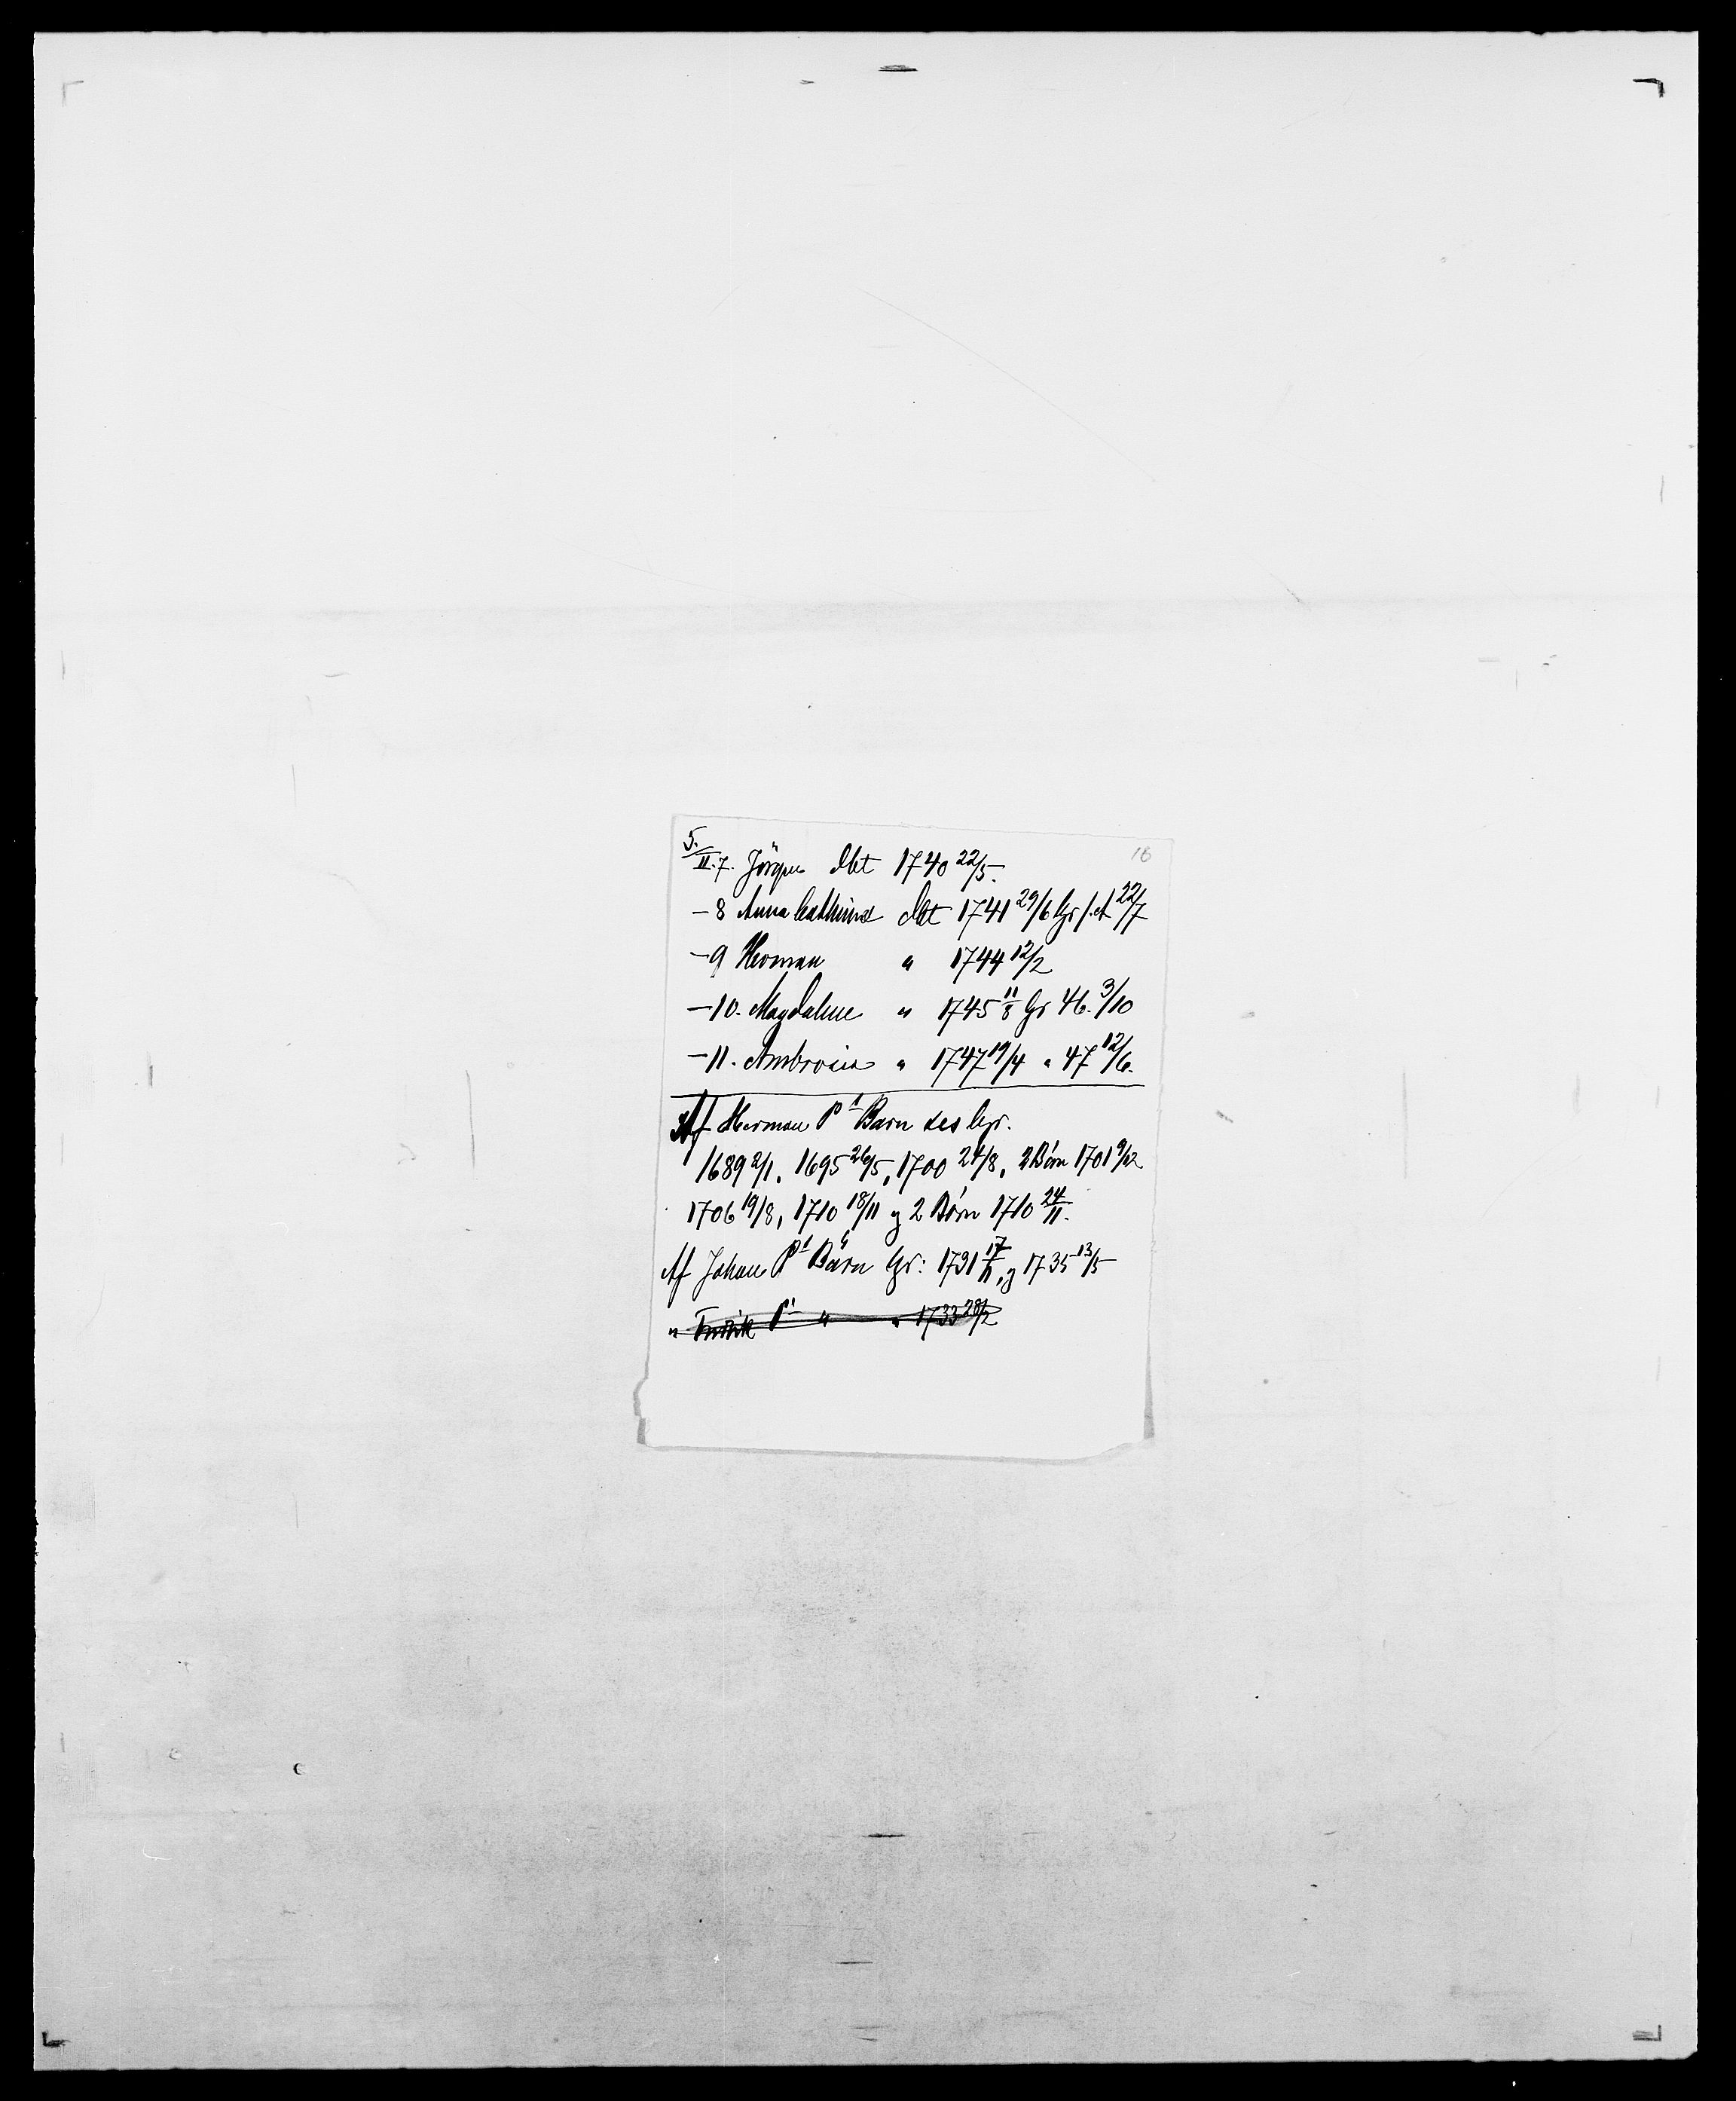 5.
II.7. Jörgen dbt 1740 22/5. 18
-8 Anna Cathrine dbt 1741 29/6 Gr s. A 22/7
-9 Herman " 1744 12/2
-10. Magdalene " 1745 11/8 Gr 46. 3/10
-11. Ambrosius " 1747 19/4 " 47 12/6.
Af Herman Ps Barn des Gr.
1689 2/1, 1695 26/5, 1700 24/8, 2 Börn 1701 9/12
1706 19/8, 1710 18/11 og 2 Börn 1710 24/11.
Af Johan Ps Börn Gr: 1731 17/11, og 1735 13/5
" Fredrik Ps " " 1733 28/2